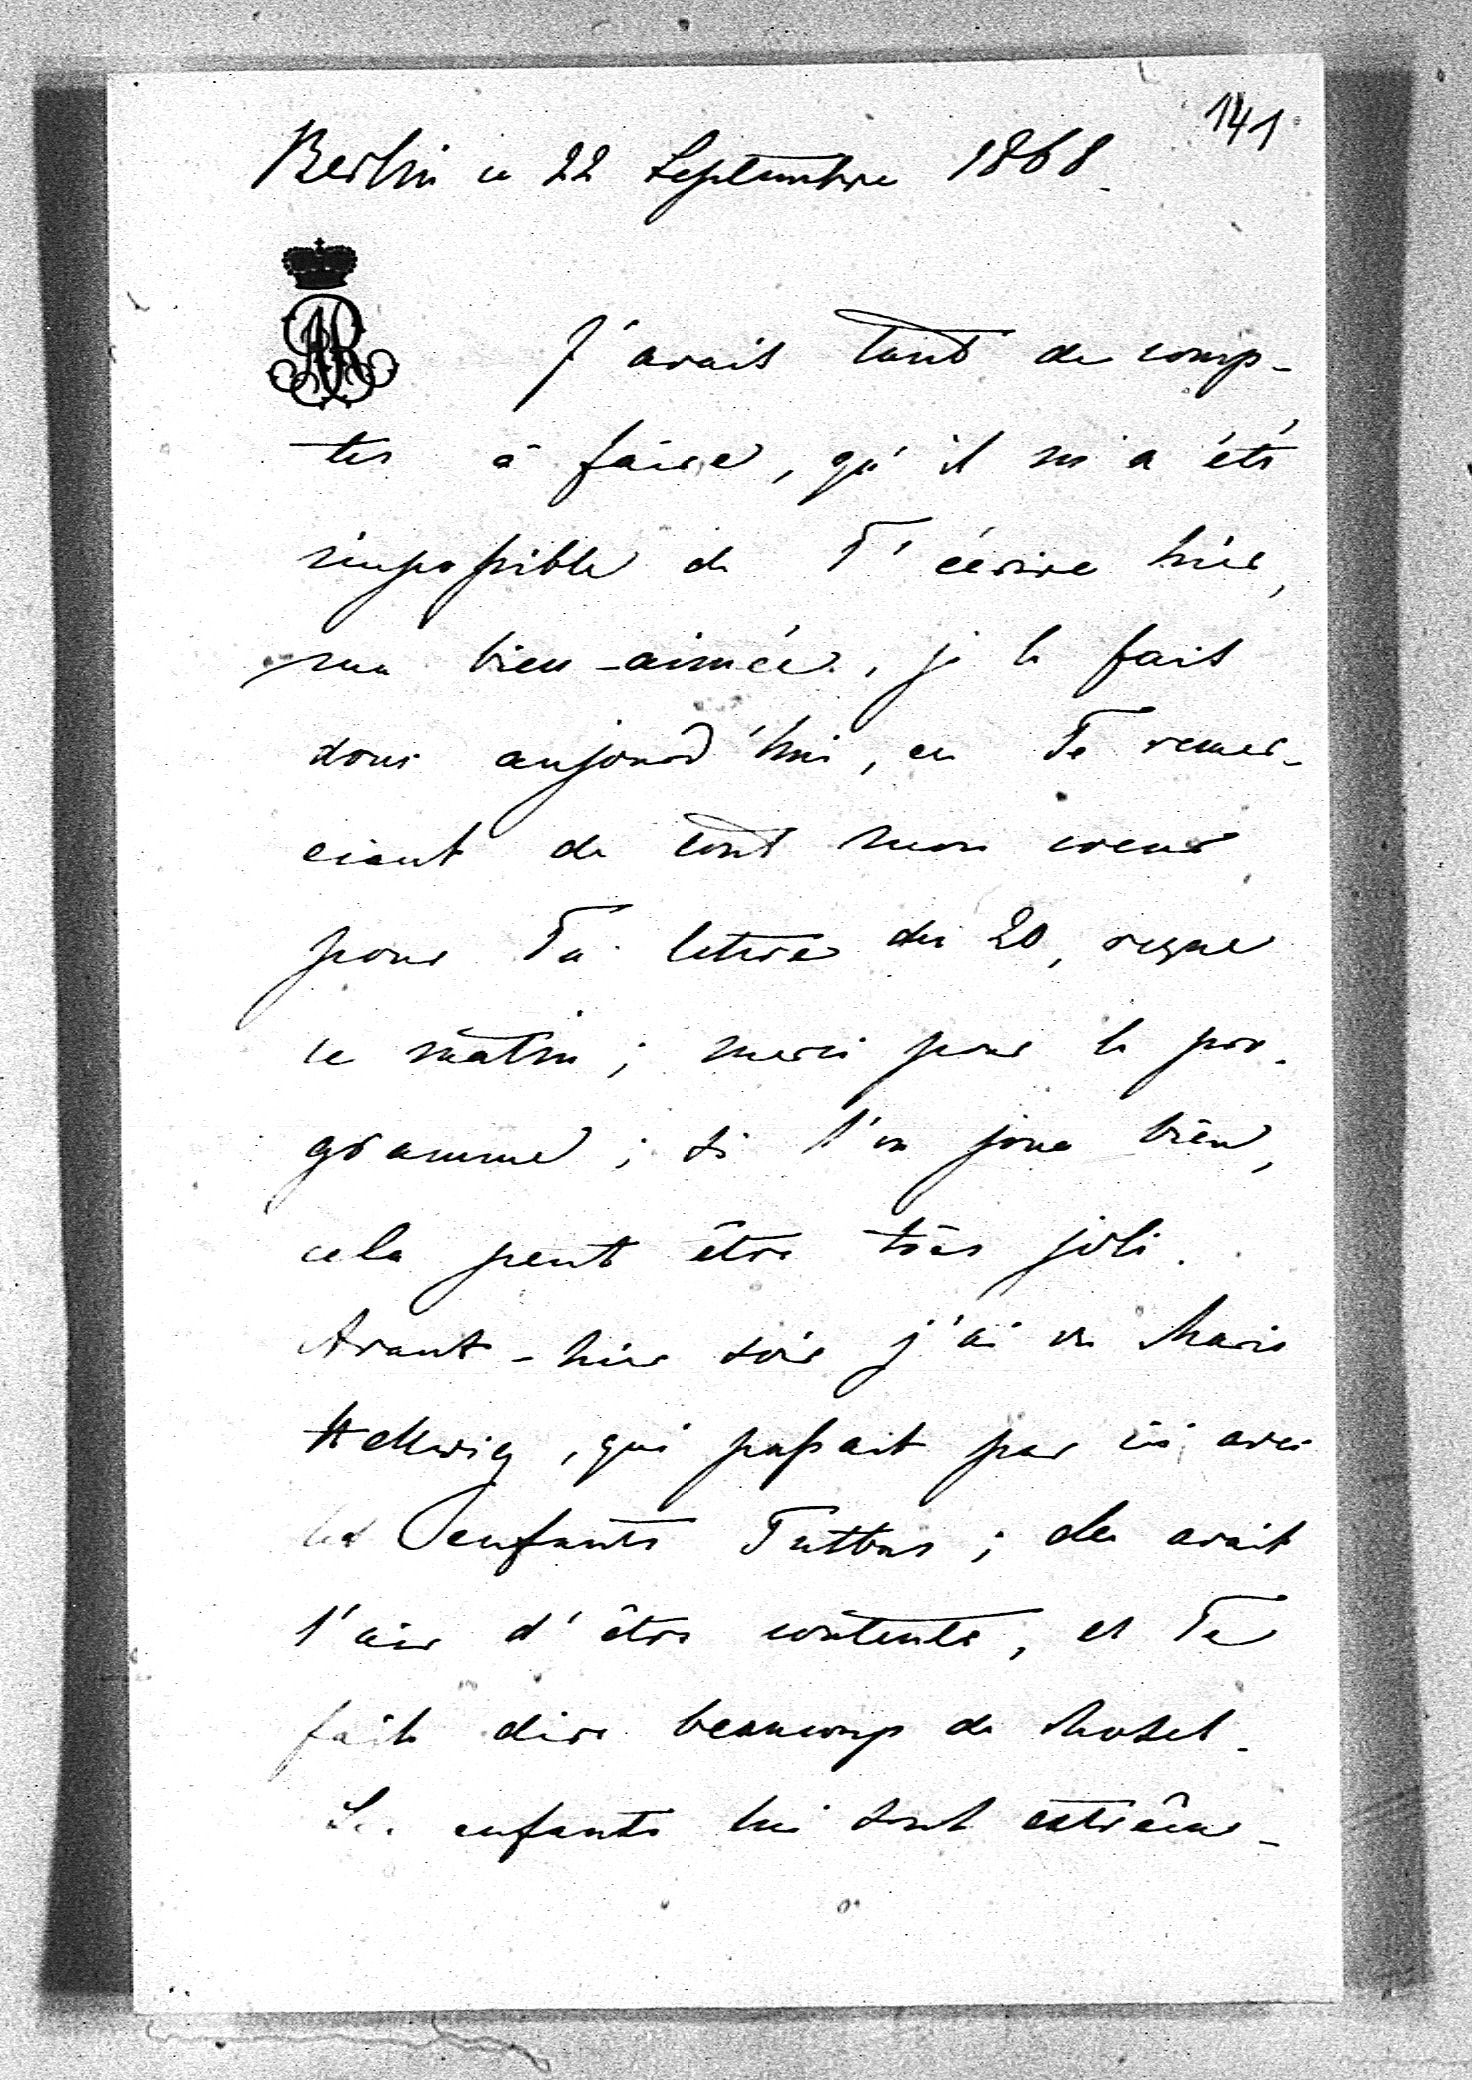 141
Berlin ce 22 Septembre 1868.
J'avais tant de comp-
tes à faire, qu'il m'a été
impossible de T'écrire hier,
ma bien-aimée, je le fais
donc aujourd'hui, en Te remer-
ciant de tout mon coeur
pour Ta lettre du 20, reçue
ce matin; merci pour le pro-
gramme; si l'on joue bien,
cela peut être très joli.
Avant-hier soir j'ai vu Marie
Hellwig, qui passait par ici avec
les enfants Putbus; elle avait
l'air d'être contente, et Te
fait dire beaucoup de choses.
Les enfants lui sont extrême-